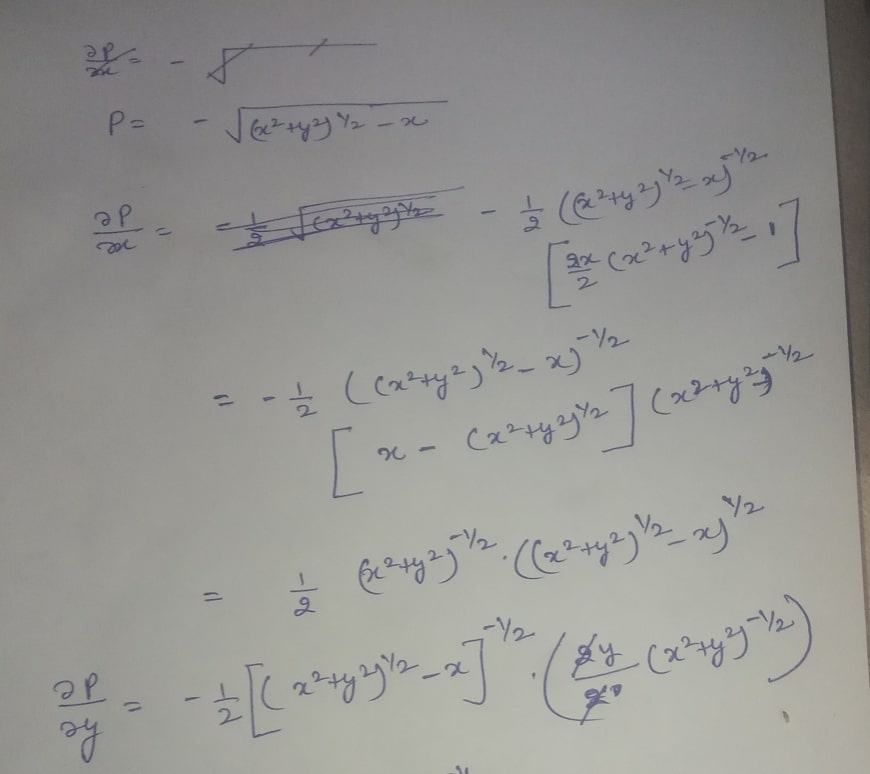 ∂P/∂x = - √
P = - √((x²+y²)^1/2 - x)
∂P/∂x = = 1/2 √(x²+y²)^1/2 - 1/2 ((x²+y²)^1/2 - x)^-1/2
[2x/2 (x²+y²)^-1/2 - 1]
= - 1/2 ((x²+y²)^1/2 - x)^-1/2
[x - (x²+y²)^1/2] (x²+y²)^-1/2
= 1/2 (x²+y²)^-1/2 · ((x²+y²)^1/2 - x)^1/2
∂P/∂y = - 1/2 [(x²+y²)^1/2 - x]^-1/2 · (2y/2 (x²+y²)^-1/2)